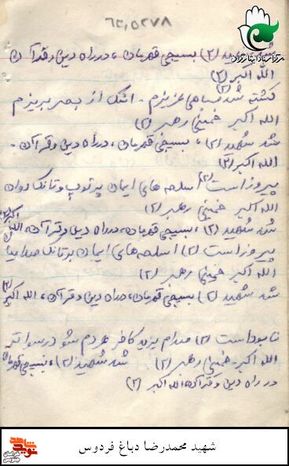 ۶۲,۵۲۷۸
شد شهید (۲) بسیجی قهرمان، در راه دین و قرآن
الله اکبر (۲)
کشته شد سپاهی عزیزم - اشک از بصر بریزم
الله اکبر خمینی رهبر (۲)
شد شهید (۲)، بسیجی قهرمان، در راه دین و قرآن -
الله اکبر (۲)
پیروز است (۲) اسلحه های ایمان بر توپ و تانک
الله اکبر خمینی رهبر (۲)
شد شهید (۲)، بسیجی قهرمان، در راه دین و قرآن الله اکبر
پیروز است (۲) اسلحه های ایمان بر تانک
الله اکبر خمینی رهبر (۲)
شد شهید (۲) بسیجی قهرمان، در راه دین و قرآن، الله اکبر (۲)
نابود است (۲) صدام یزید کافر هر دم شود رسواتر
الله اکبر - خمینی رهبر (۲) شد شهید (۲)، بسیجی قهرمان
در راه دین و قرآن الله اکبر (۲)
شهید محمدرضا دباغ فردوس